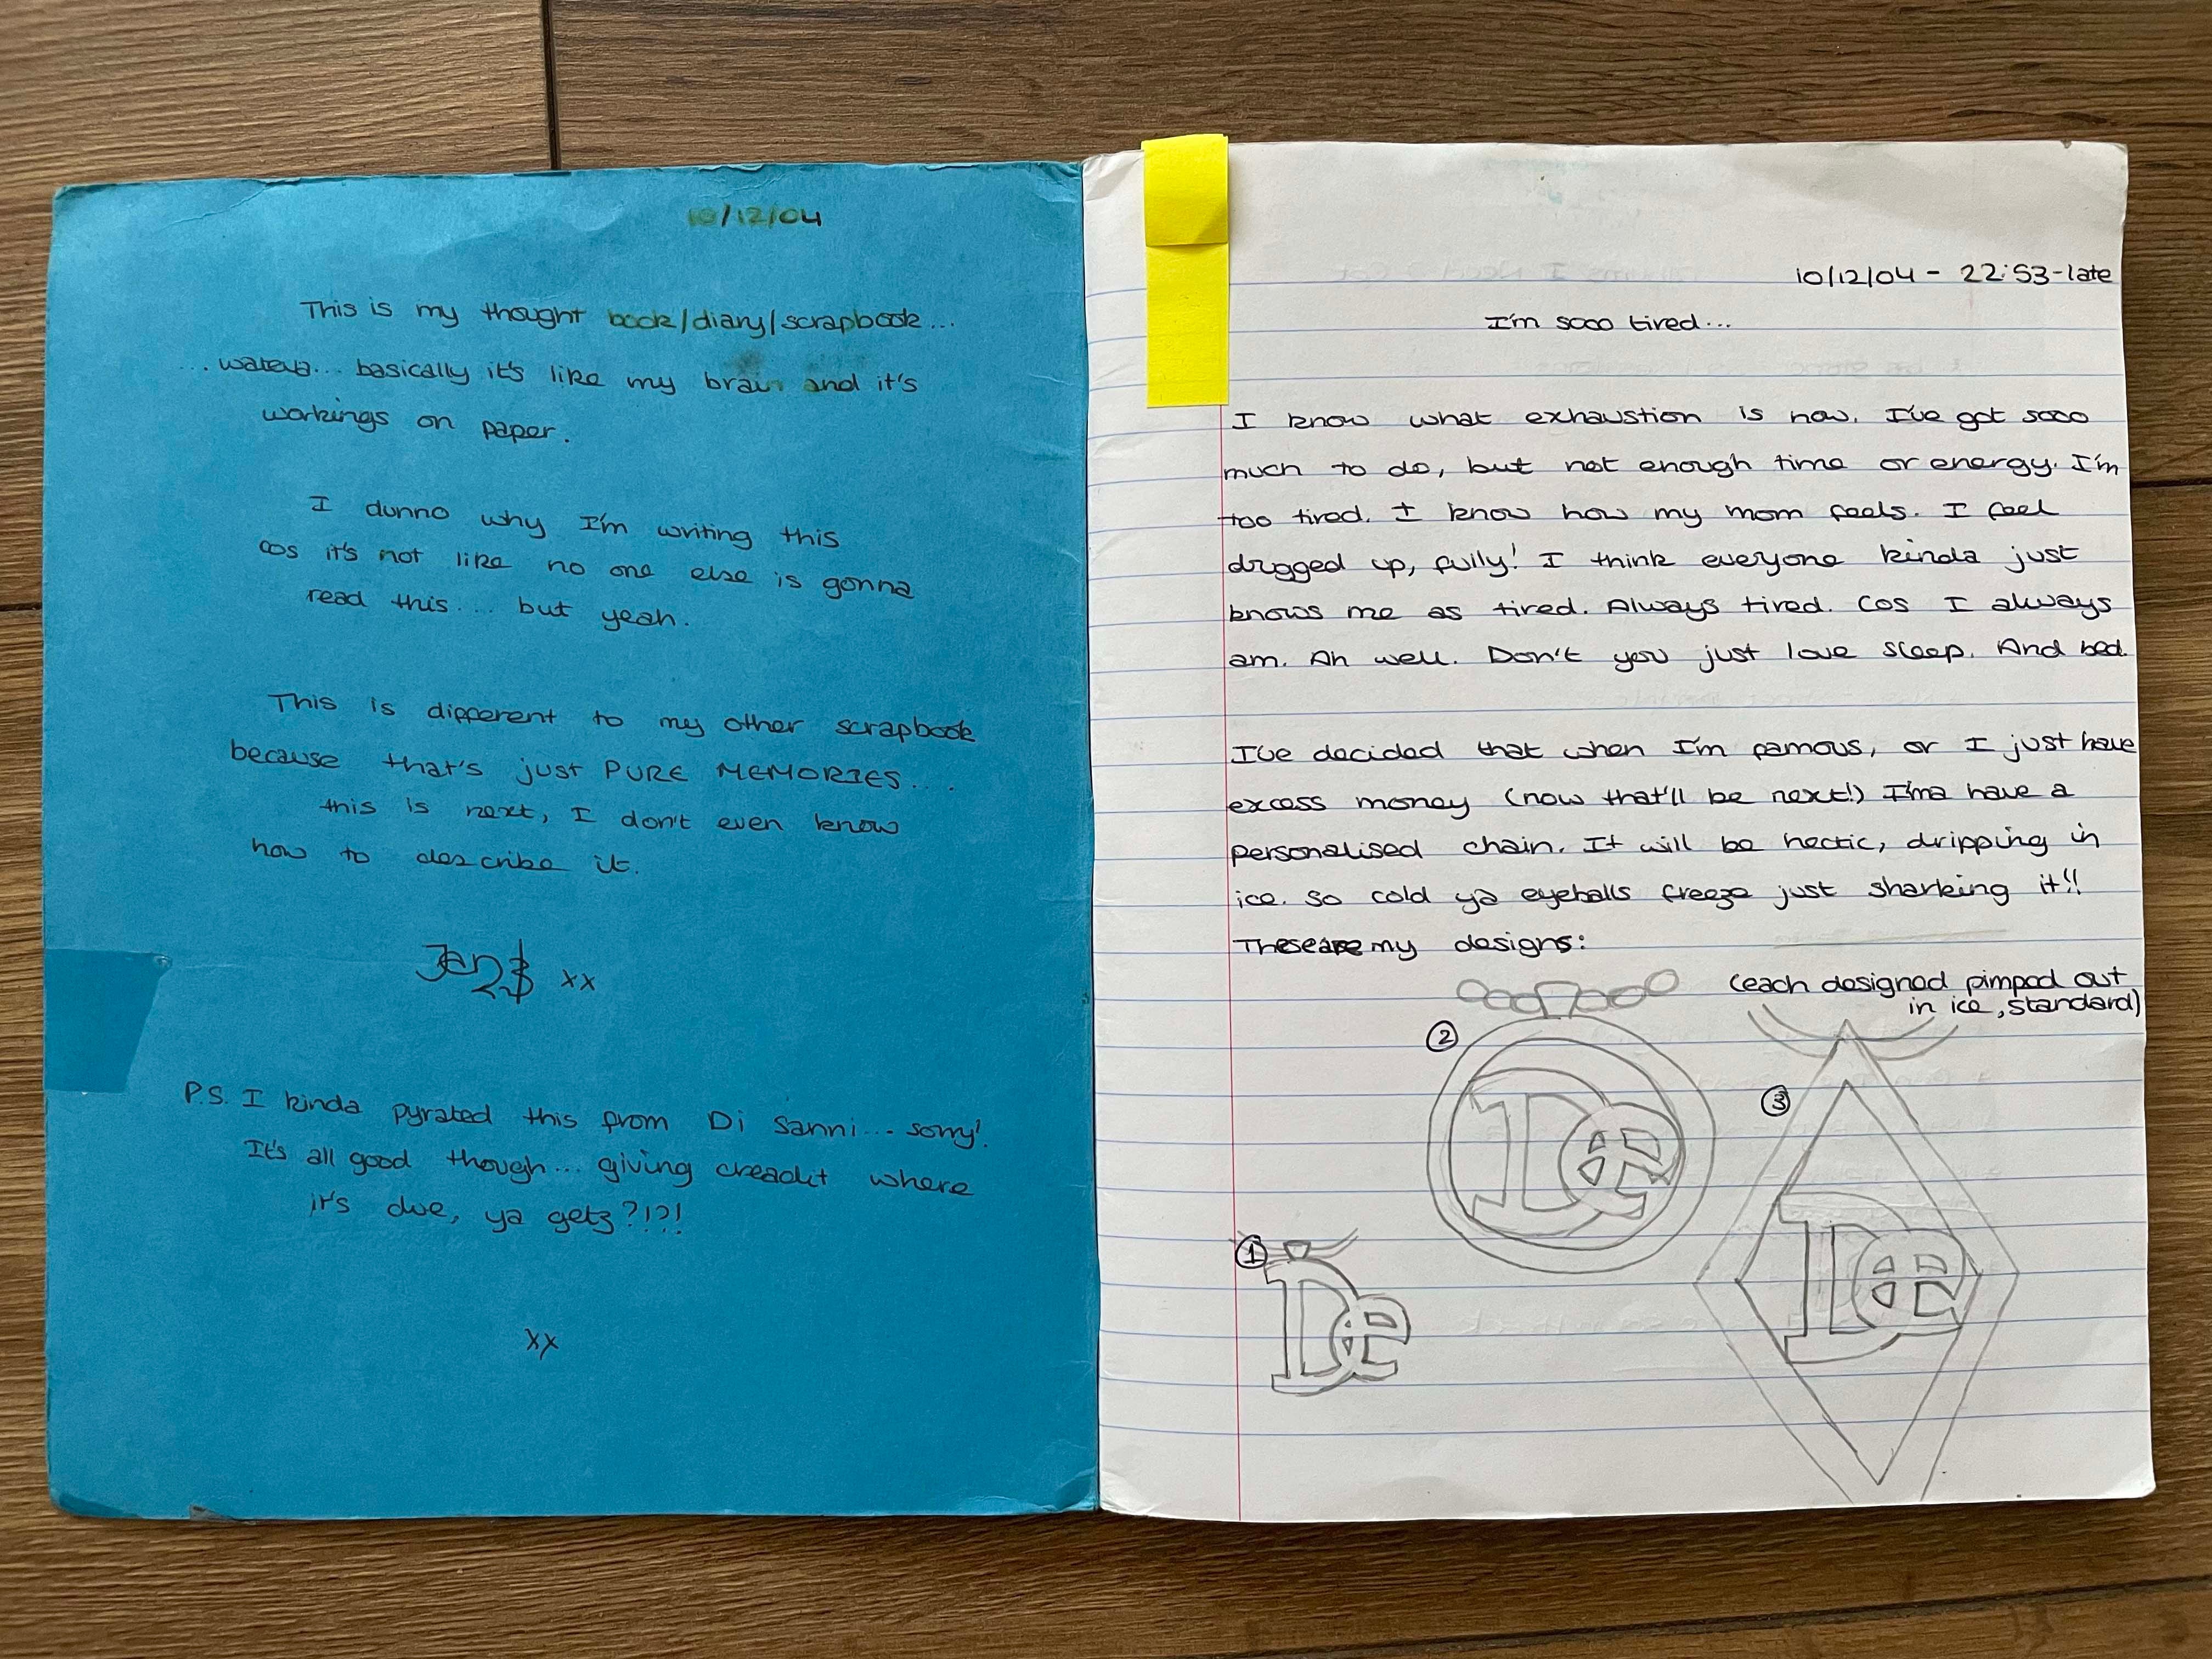 10/12/04
This is my thought book/diary/scrapbook...
...wateva... basically it's like my brain and it's
workings on paper.
I dunno why I'm writing this
cos it's not like no one else is gonna
read this... but yeah.
This is different to my other scrapbook
because that's just PURE MEMORIES...
this is next, I don't even know
how to describe it.
xx
P.S. I kinda pyrated this from Di Sanni... sorry!
It's all good though... giving creadit where
it's due, ya getz?!?!
xx
10/12/04 - 22:53-late
I'm sooo tired...
I know what exhaustion is now. I've got sooo
much to do, but not enough time or energy. I'm
too tired. I know how my mom feels. I feel
drugged up, fully! I think everyone kinda just
knows me as tired. Always tired. Cos I always
am. Ah well. Don't you just love sleep. And bed.
I've decided that when I'm famous, or I just have
excess money (now that'll be next!) I'ma have a
personalised chain. It will be hectic, dripping in
ice. So cold ya eyeballs freeze just sharking it!!
These are my designs:
(each designed pimped out
in ice, standard)
2
De
3
De
1
De